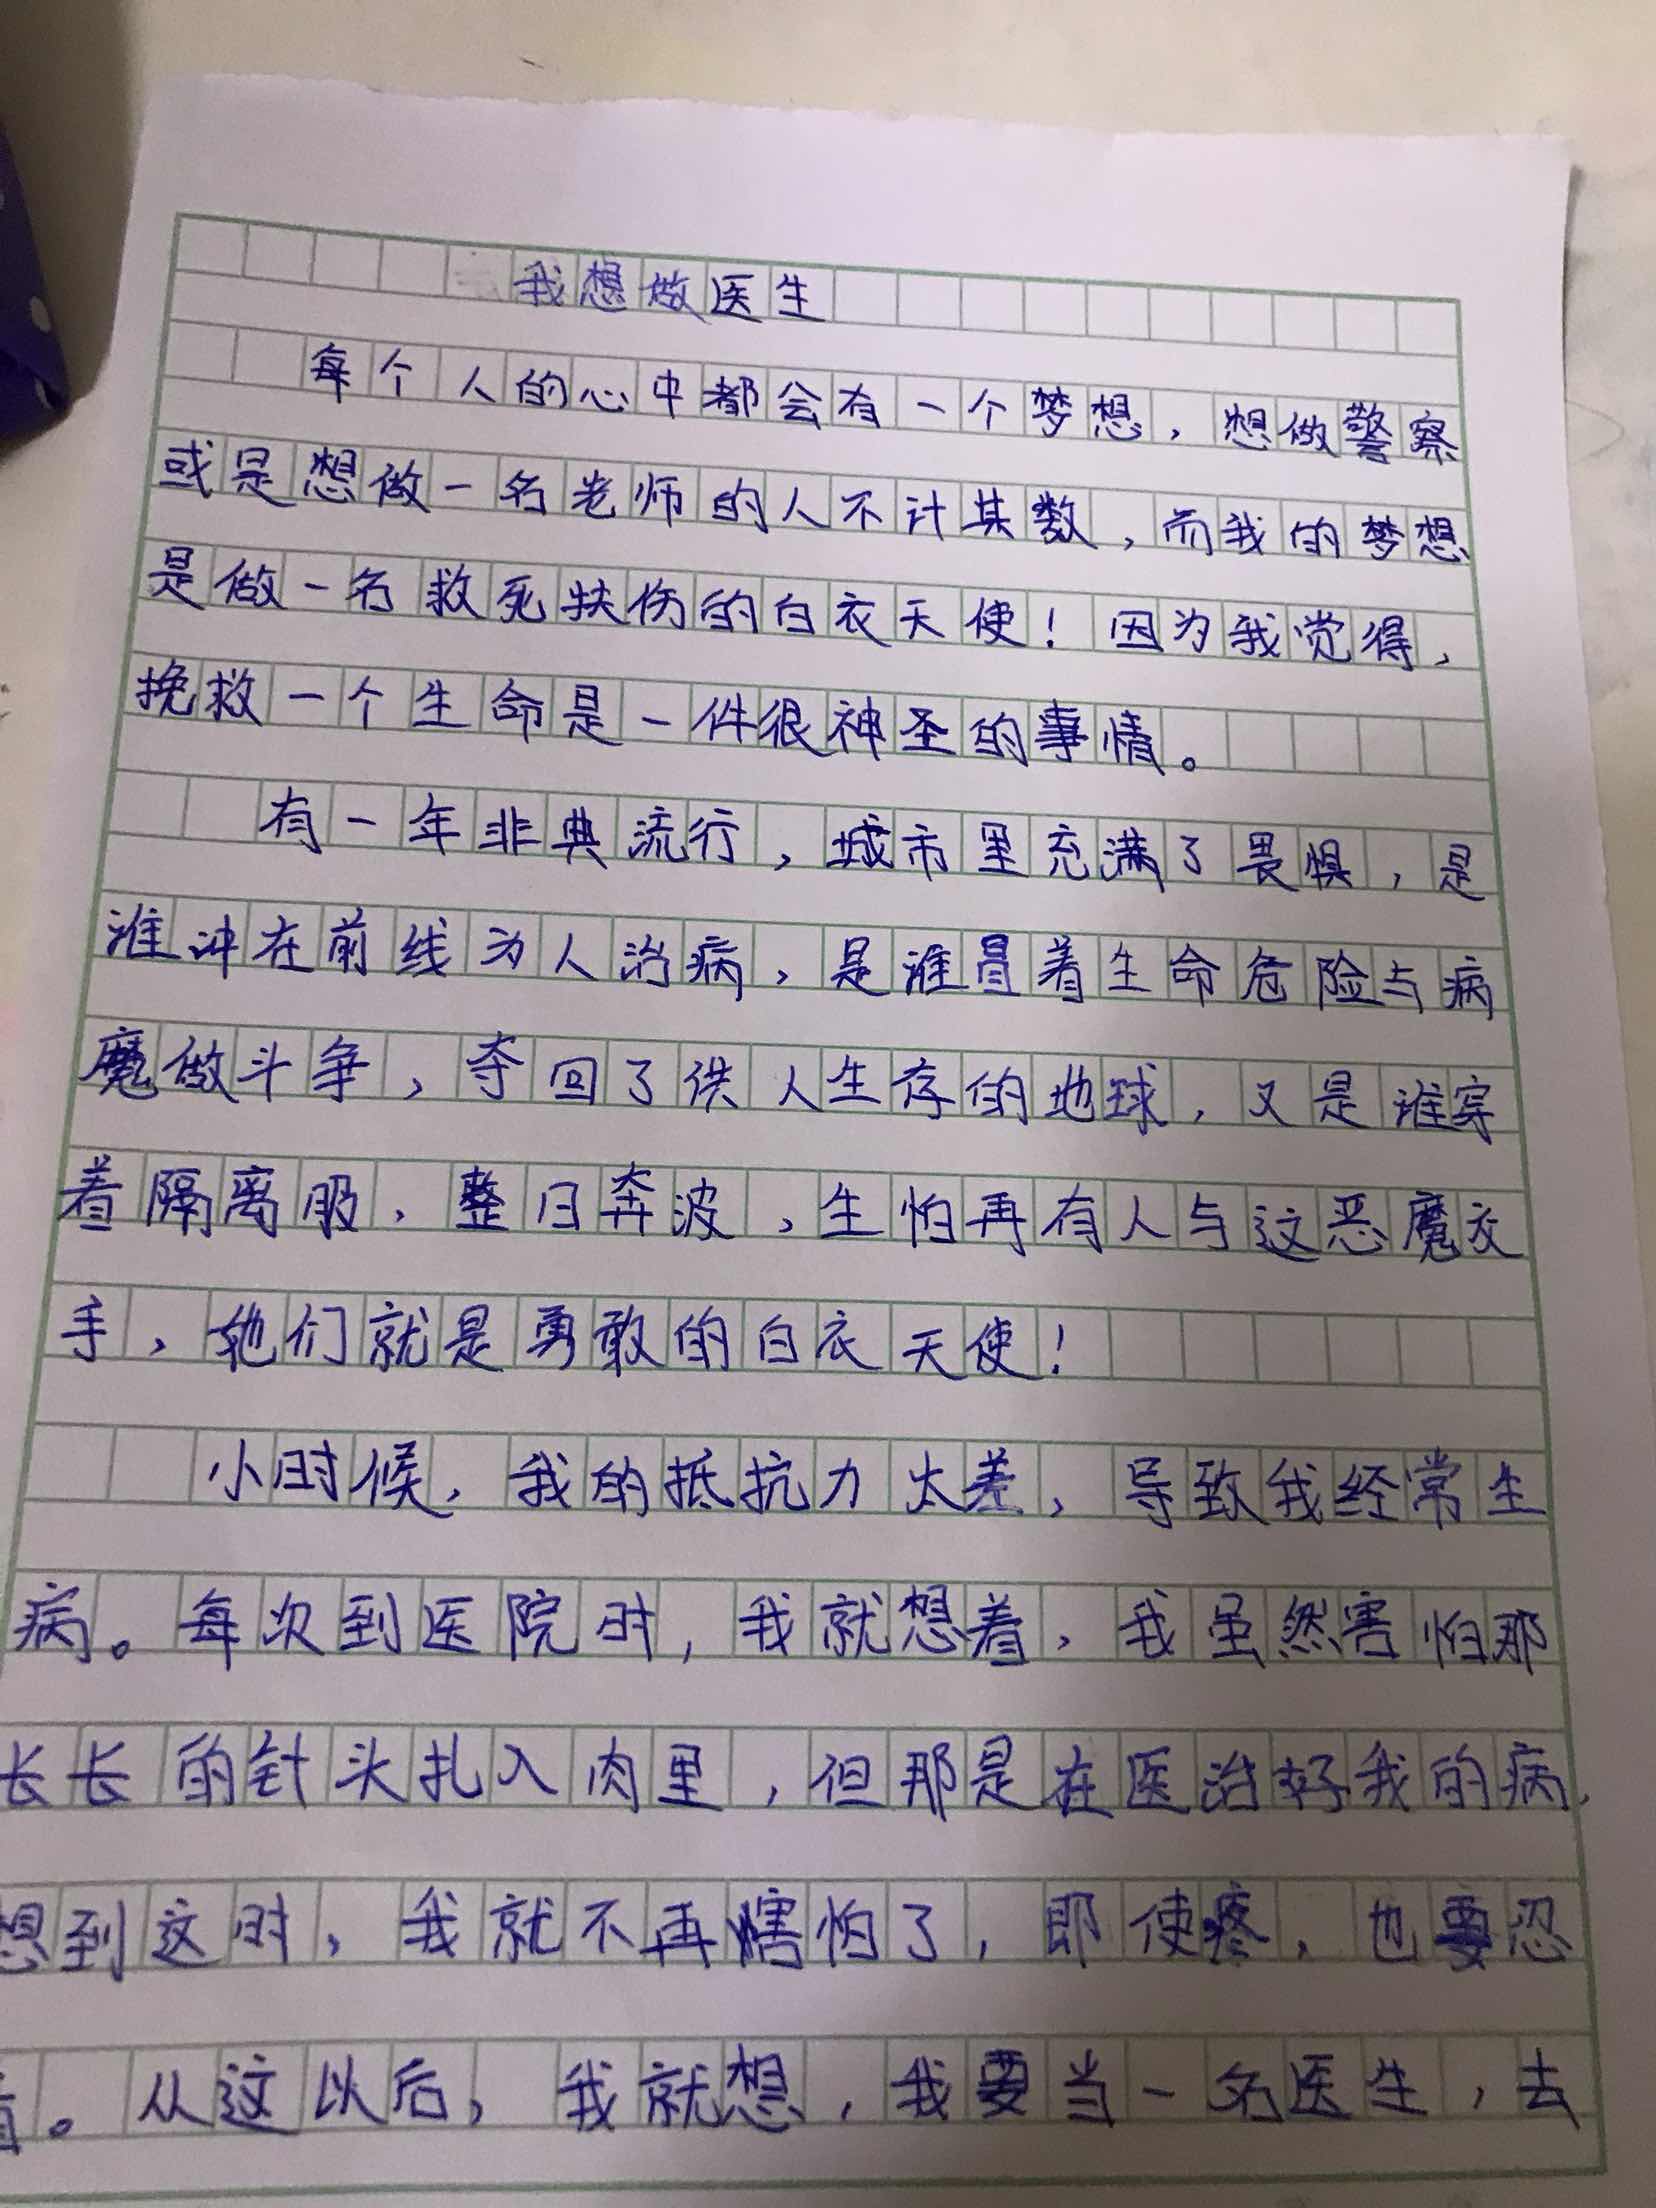 我想做医生
每个人的心中都会有一个梦想，想做警察
或是想做一名老师的人不计其数，而我的梦想
是做一名救死扶伤的白衣天使！因为我觉得，
挽救一个生命是一件很神圣的事情。
有一年非典流行，城市里充满了畏惧，是
谁冲在前线为人治病，是谁冒着生命危险与病
魔做斗争，夺回了供人生存的地球，又是谁穿
着隔离服，整日奔波，生怕再有人与这恶魔交
手，他们就是勇敢的白衣天使！
小时候，我的抵抗力太差，导致我经常生
病。每次到医院时，我就想着，我虽然害怕那
长长的针头扎入肉里，但那是在医治好我的病，
想到这时，我就不再害怕了，即使疼，也要忍
着。从这以后，我就想，我要当一名医生，去